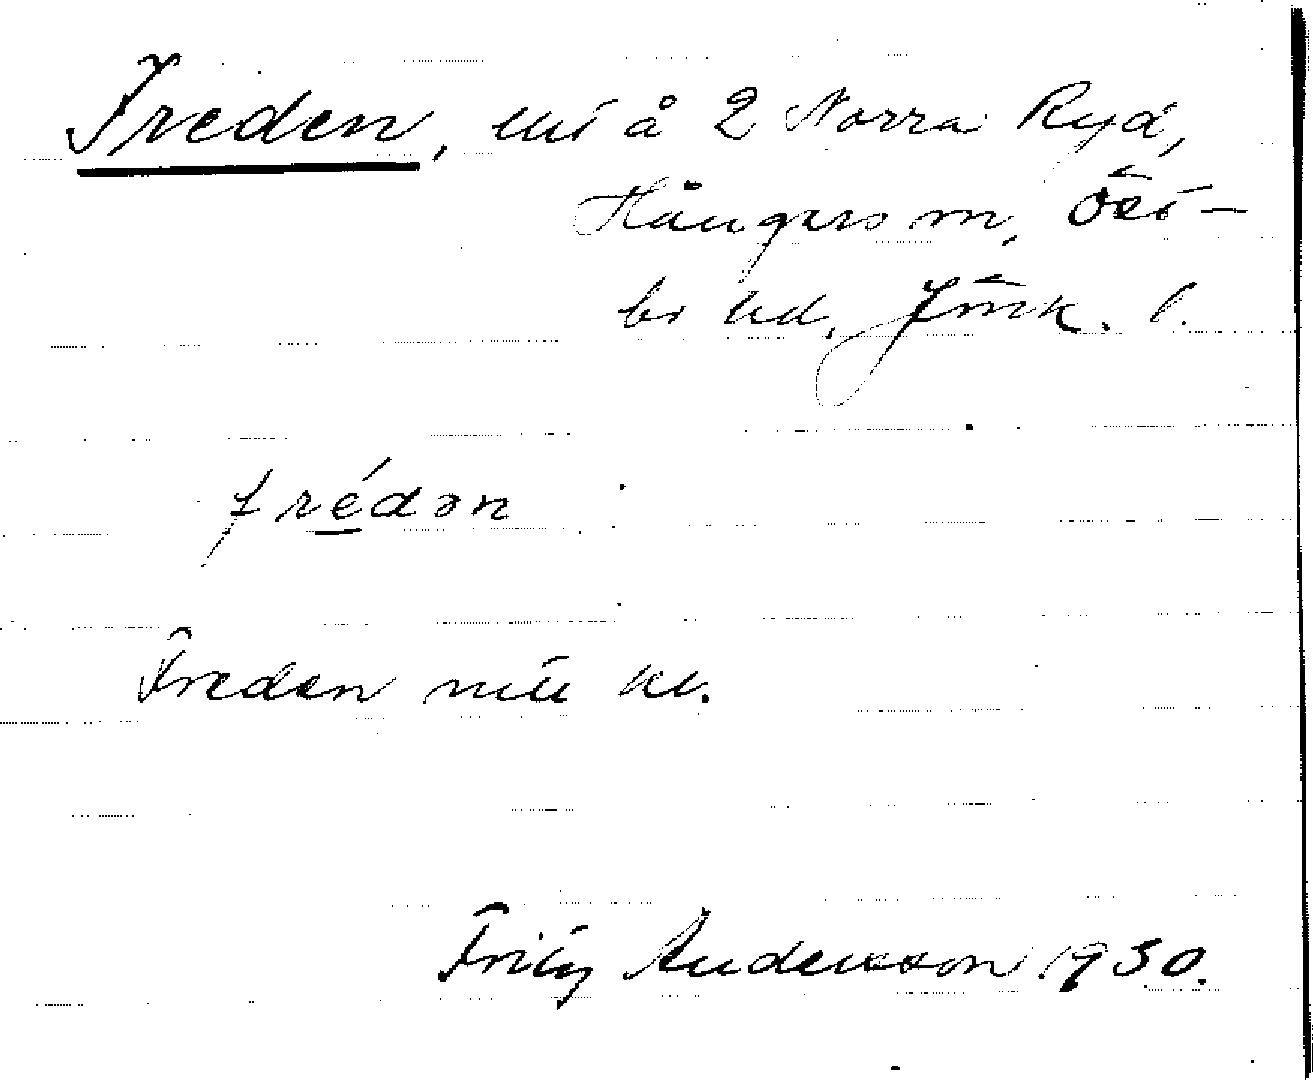 Freden, utj å 2 Norra Ryd,
Hångers sn, Öst-
bo hd, Jönk. l.
frédən
Freden
Fritz Andersson 1930.